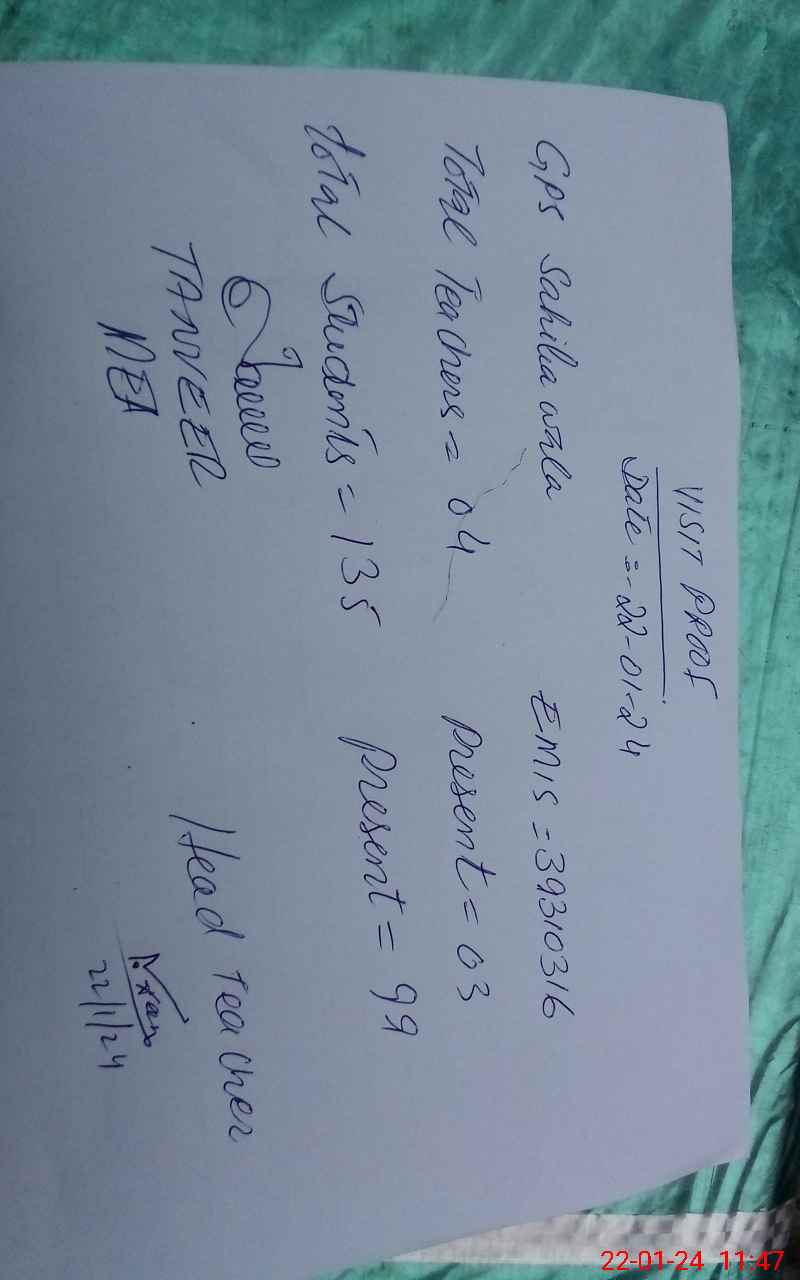 VISIT PROOF
Date :- 22-01-24
GPS Sahiba wala EMIS = 39310316
Total Teachers = 04 Present = 03
Total Students = 135 Present = 99
TANVEER Head Teacher
MEA
22/1/24
22-01-24 11:47